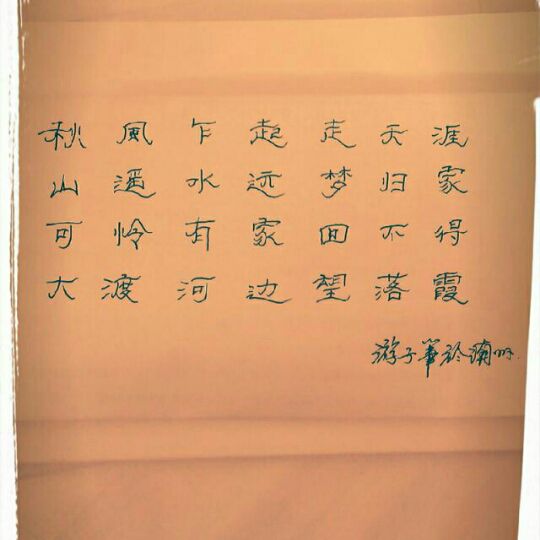 秋風乍起走天涯
山遥水迹梦归家
可怜有家回不得
大渡河边望落霞
游子筆於